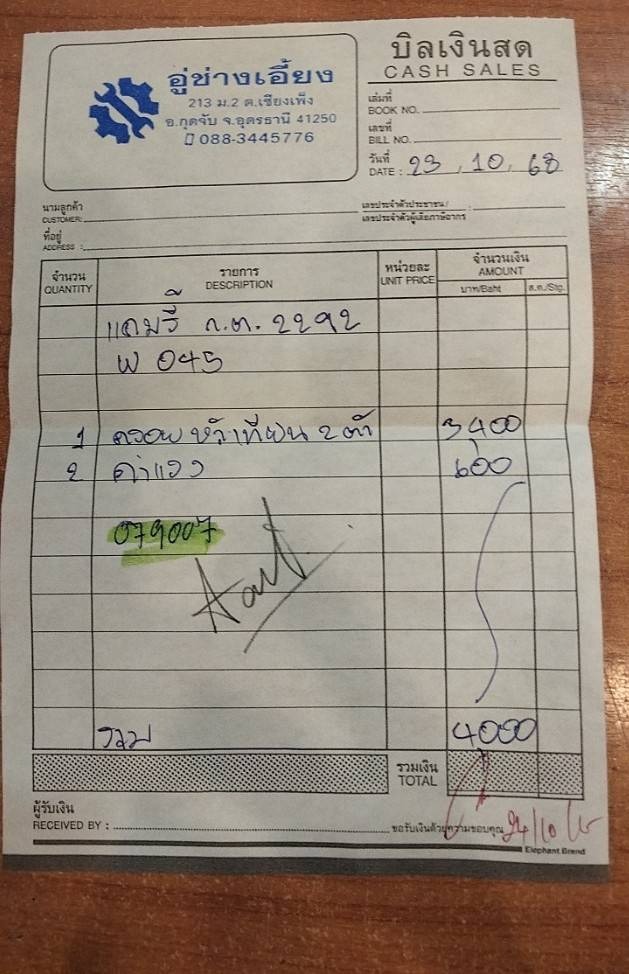 อู่ช่างเอี้ยง
213 ม.2 ต.เชียงเพ็ง
อ.กุดจับ จ.อุดรธานี 41250
088-3445776
บิลเงินสด
CASH SALES
เล่มที่
BOOK NO.
เลขที่
BILL NO.
วันที่
DATE : 23, 10, 68
นามลูกค้า
CUSTOMER:
เลขประจำตัวประชาชน/
เลขประจำตัวผู้เสียภาษีอากร :
ที่อยู่
ADDRESS :
จำนวน รายการ หน่วยละ จำนวนเงิน
QUANTITY DESCRIPTION UNIT PRICE AMOUNT
บาท/Baht ส.ต./Stg.
2292
045
1 หัวเทียน 3400
2 ค่าแรง 600
079007
รวม 4000
รวมเงิน
TOTAL
ผู้รับเงิน
RECEIVED BY :
ขอรับเงินด้วยความขอบคุณ 24/10/
Elephant Brand